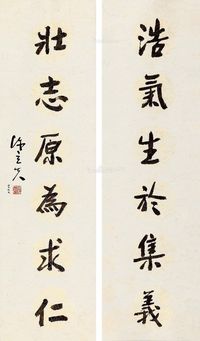 浩氣生於集義
壯志原為求仁
陳立夫